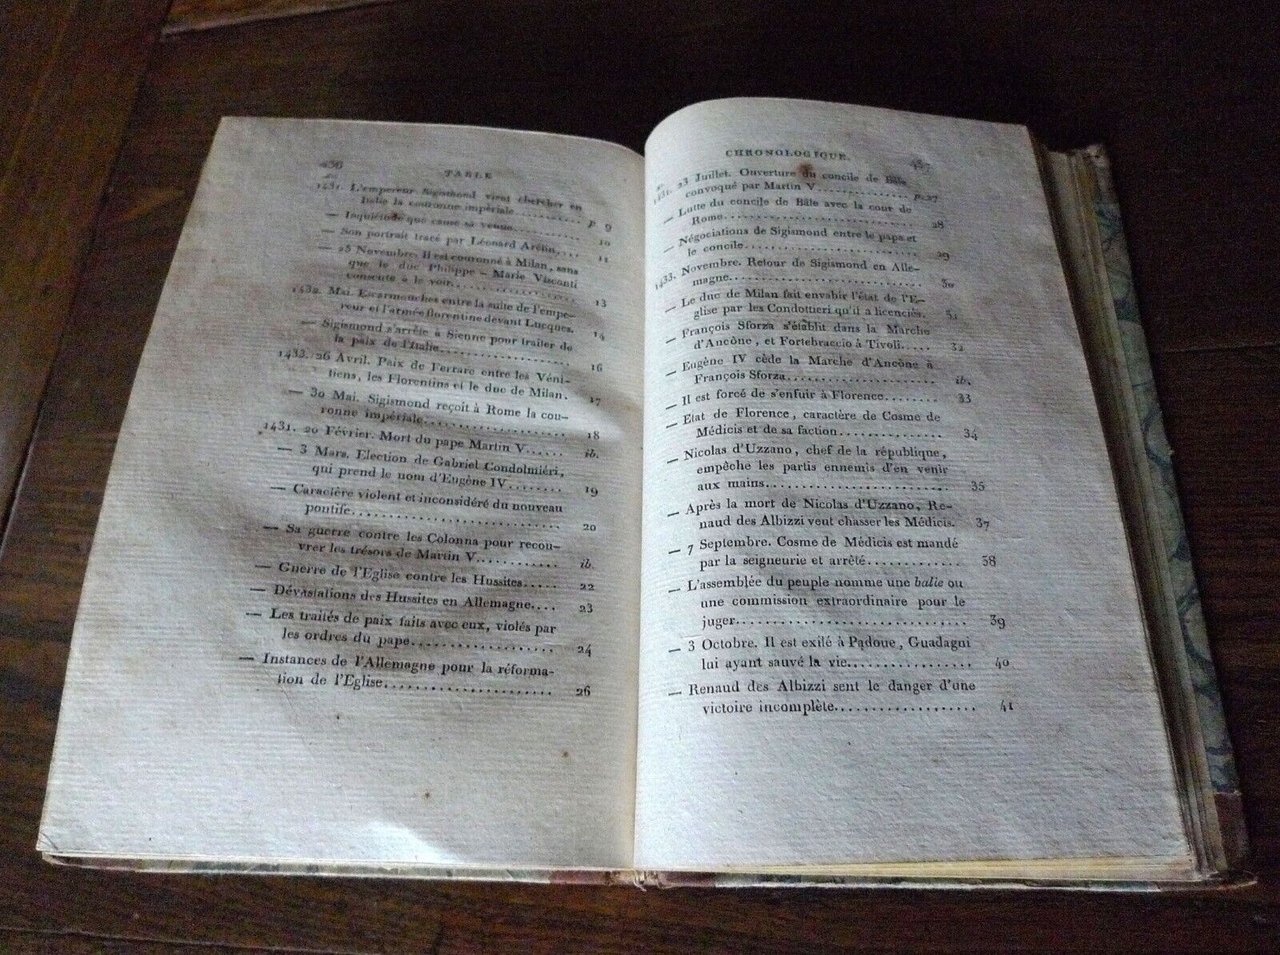 436
TABLE
an.
1431. L'empereur Sigismond vient chercher en
Italie la couronne impériale.......... p. 9
— Inquiétude que cause sa venue............ 10
— Son portrait tracé par Léonard Arétin.... 11
— 25 Novembre. Il est couronné à Milan, sans
que le duc Philippe-Marie Visconti
consente à le voir.................... 13
1432. Mai. Escarmouches entre la suite de l'empe-
reur et l'armée florentine devant Lucques. 14
— Sigismond s'arrête à Sienne pour traiter de
la paix de l'Italie.................... 16
1433. 26 Avril. Paix de Ferrare entre les Véni-
tiens, les Florentins et le duc de Milan. 17
— 30 Mai. Sigismond reçoit à Rome la cou-
ronne impériale...................... 18
1431. 20 Février. Mort du pape Martin V..... ib.
— 3 Mars. Election de Gabriel Condolmiéri,
qui prend le nom d'Eugène IV........ 19
— Caractère violent et inconsidéré du nouveau
pontife.............................. 20
— Sa guerre contre les Colonna pour recou-
vrer les trésors de Martin V.......... ib.
— Guerre de l'Eglise contre les Hussites..... 22
— Dévastations des Hussites en Allemagne.... 23
— Les traités de paix faits avec eux, violés par
les ordres du pape.................... 24
— Instances de l'Allemagne pour la réforma-
tion de l'Eglise...................... 26
CHRONOLOGIQUE.
437
an.
1431. 23 Juillet. Ouverture du concile de Bâle
convoqué par Martin V............ p. 27
— Lutte du concile de Bâle avec la cour de
Rome.............................. 28
— Négociations de Sigismond entre le pape et
le concile.......................... 29
1433. Novembre. Retour de Sigismond en Alle-
magne.............................. 30
— Le duc de Milan fait envahir l'état de l'E-
glise par les Condottieri qu'il a licenciés. 31
— François Sforza s'établit dans la Marche
d'Ancône, et Fortebraccio à Tivoli..... 32
— Eugène IV cède la Marche d'Ancône à
François Sforza.................... ib.
— Il est forcé de s'enfuir à Florence........ 33
— Etat de Florence, caractère de Cosme de
Médicis et de sa faction............... 34
— Nicolas d'Uzzano, chef de la république,
empêche les partis ennemis d'en venir
aux mains.......................... 35
— Après la mort de Nicolas d'Uzzano, Re-
naud des Albizzi veut chasser les Médicis. 37
— 7 Septembre. Cosme de Médicis est mandé
par la seigneurie et arrêté............. 38
— L'assemblée du peuple nomme une balie ou
une commission extraordinaire pour le
juger.............................. 39
— 3 Octobre. Il est exilé à Padoue, Guadagni
lui ayant sauvé la vie................. 40
— Renaud des Albizzi sent le danger d'une
victoire incomplète................... 41